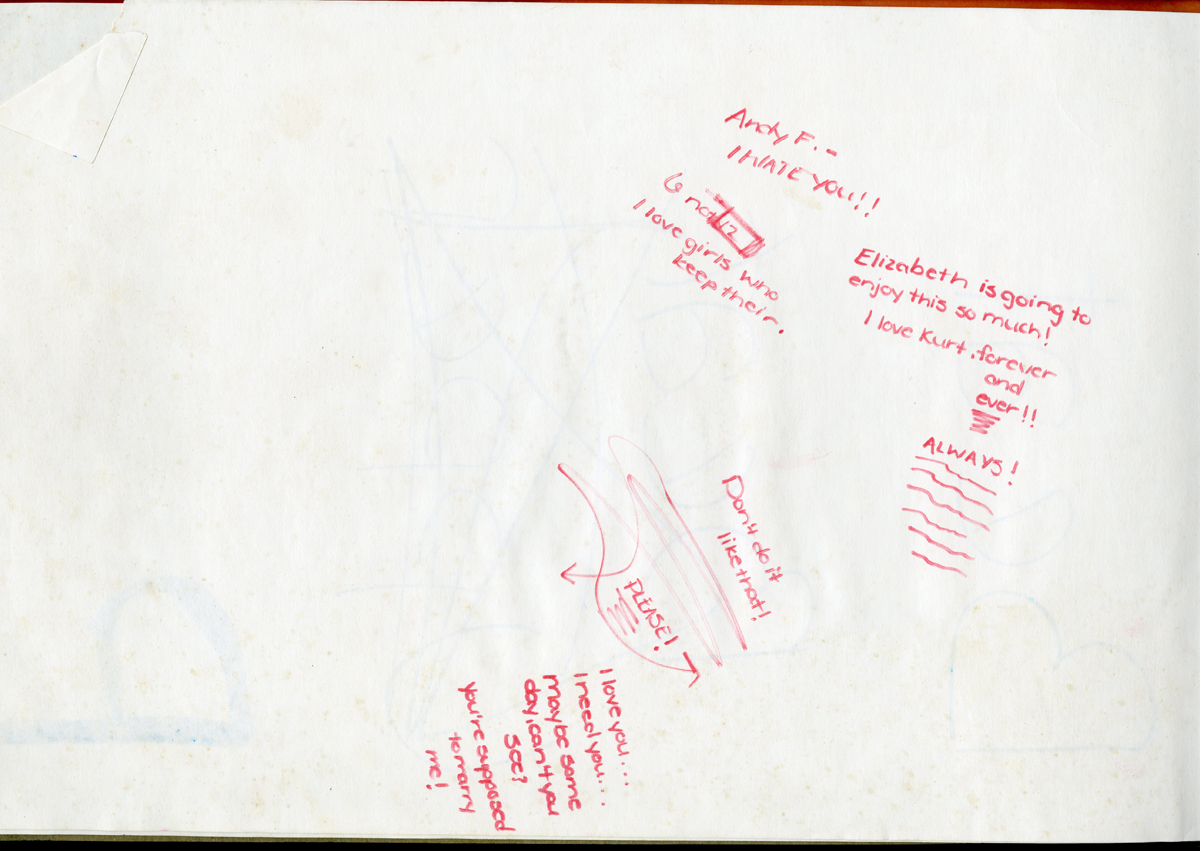 Andy F. -
I HATE YOU!!
6 not 12
I love girls who
keep their.
Elizabeth is going to
enjoy this so much!
I love Kurt, forever
and
ever!!
ALWAYS!
Don't do it
like that!
PLEASE!
I love you...
I need you....
maybe some
day, can't you
see?
you're supposed
to marry
me!